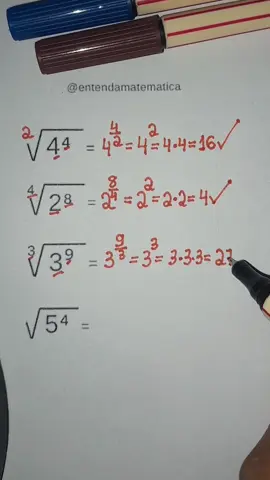 @entendamatematica
²√4⁴ = 4^(4/2) = 4² = 4·4 = 16 ✓
⁴√2⁸ = 2^(8/4) = 2² = 2·2 = 4 ✓
³√3⁹ = 3^(9/3) = 3³ = 3·3·3 = 27
√5⁴ =